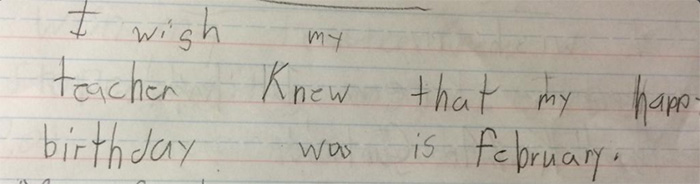 I wish my
teacher Knew that my happ
birthday was is february.